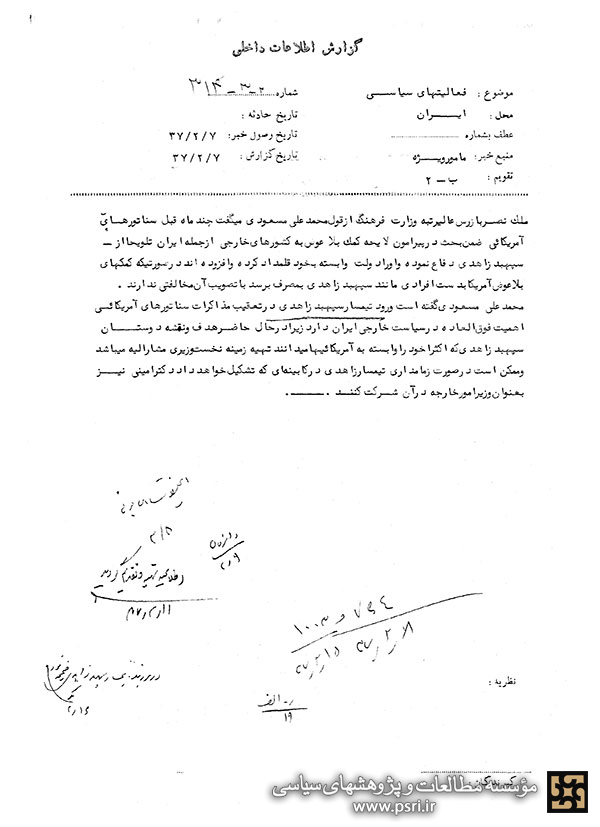 گزارش اطلاعات داخلی
موضوع : فعالیتهای سیاسی
شماره ۳۱۴-۳-۲
محل : ایران
تاریخ حادثه :
عطف بشماره
تاریخ رصول خبر: ۳۷/۲/۷
منبع خبر: مامورویژه
تاریخ گزارش : ۳۷/۲/۷
تقویم : ب-۲
ملك نصر بازرس عالیرتبه وزارت فرهنگ از قول محمد علی مسعودی میگفت چند ماه قبل سناتورهای
آمریکائی ضمن بحث در پیرامون لایحه کمك بلا عوض به کشورهای خارجی از جمله ایران تلویحا از -
سپهبد زاهدی دفاع نموده و او را دولت وابسته بخود قلمداد کرده و افزوده اند در صورتیکه کمکهای
بلاعوض آمریکا بدست افرادی مانند سپهبد زاهدی بمصرف برسد با تصویب آن مخالفتی ندارند .
محمد علی مسعودی گفته است ورود تیمسار سپهبد زاهدی در تعقیب مذاکرات سناتورهای آمریکائی
اهمیت فوق العاده در سیاست خارجی ایران دارد زیرا در حال حاضر هدف و نقشه دوستان
سپهبد زاهدی که اکثرا خود را وابسته به آمریکائیها میدانند تهیه زمینه نخست وزیری مشارالیه میباشد
وممکن است در صورت زمامداری تیمسار زاهدی در کابینه ای که تشکیل خواهد داد دکتر امینی نیز
بعنوان وزیر امور خارجه در آن شرکت کنند .
۳/۸
۲/۹
اطلاعیه تهیه و تقدیم گردید
نظریه :
ر- الف
۱۹
گیرندگان :
مؤسسه مطالعات و پژوهشهای سیاسی
www.psri.ir